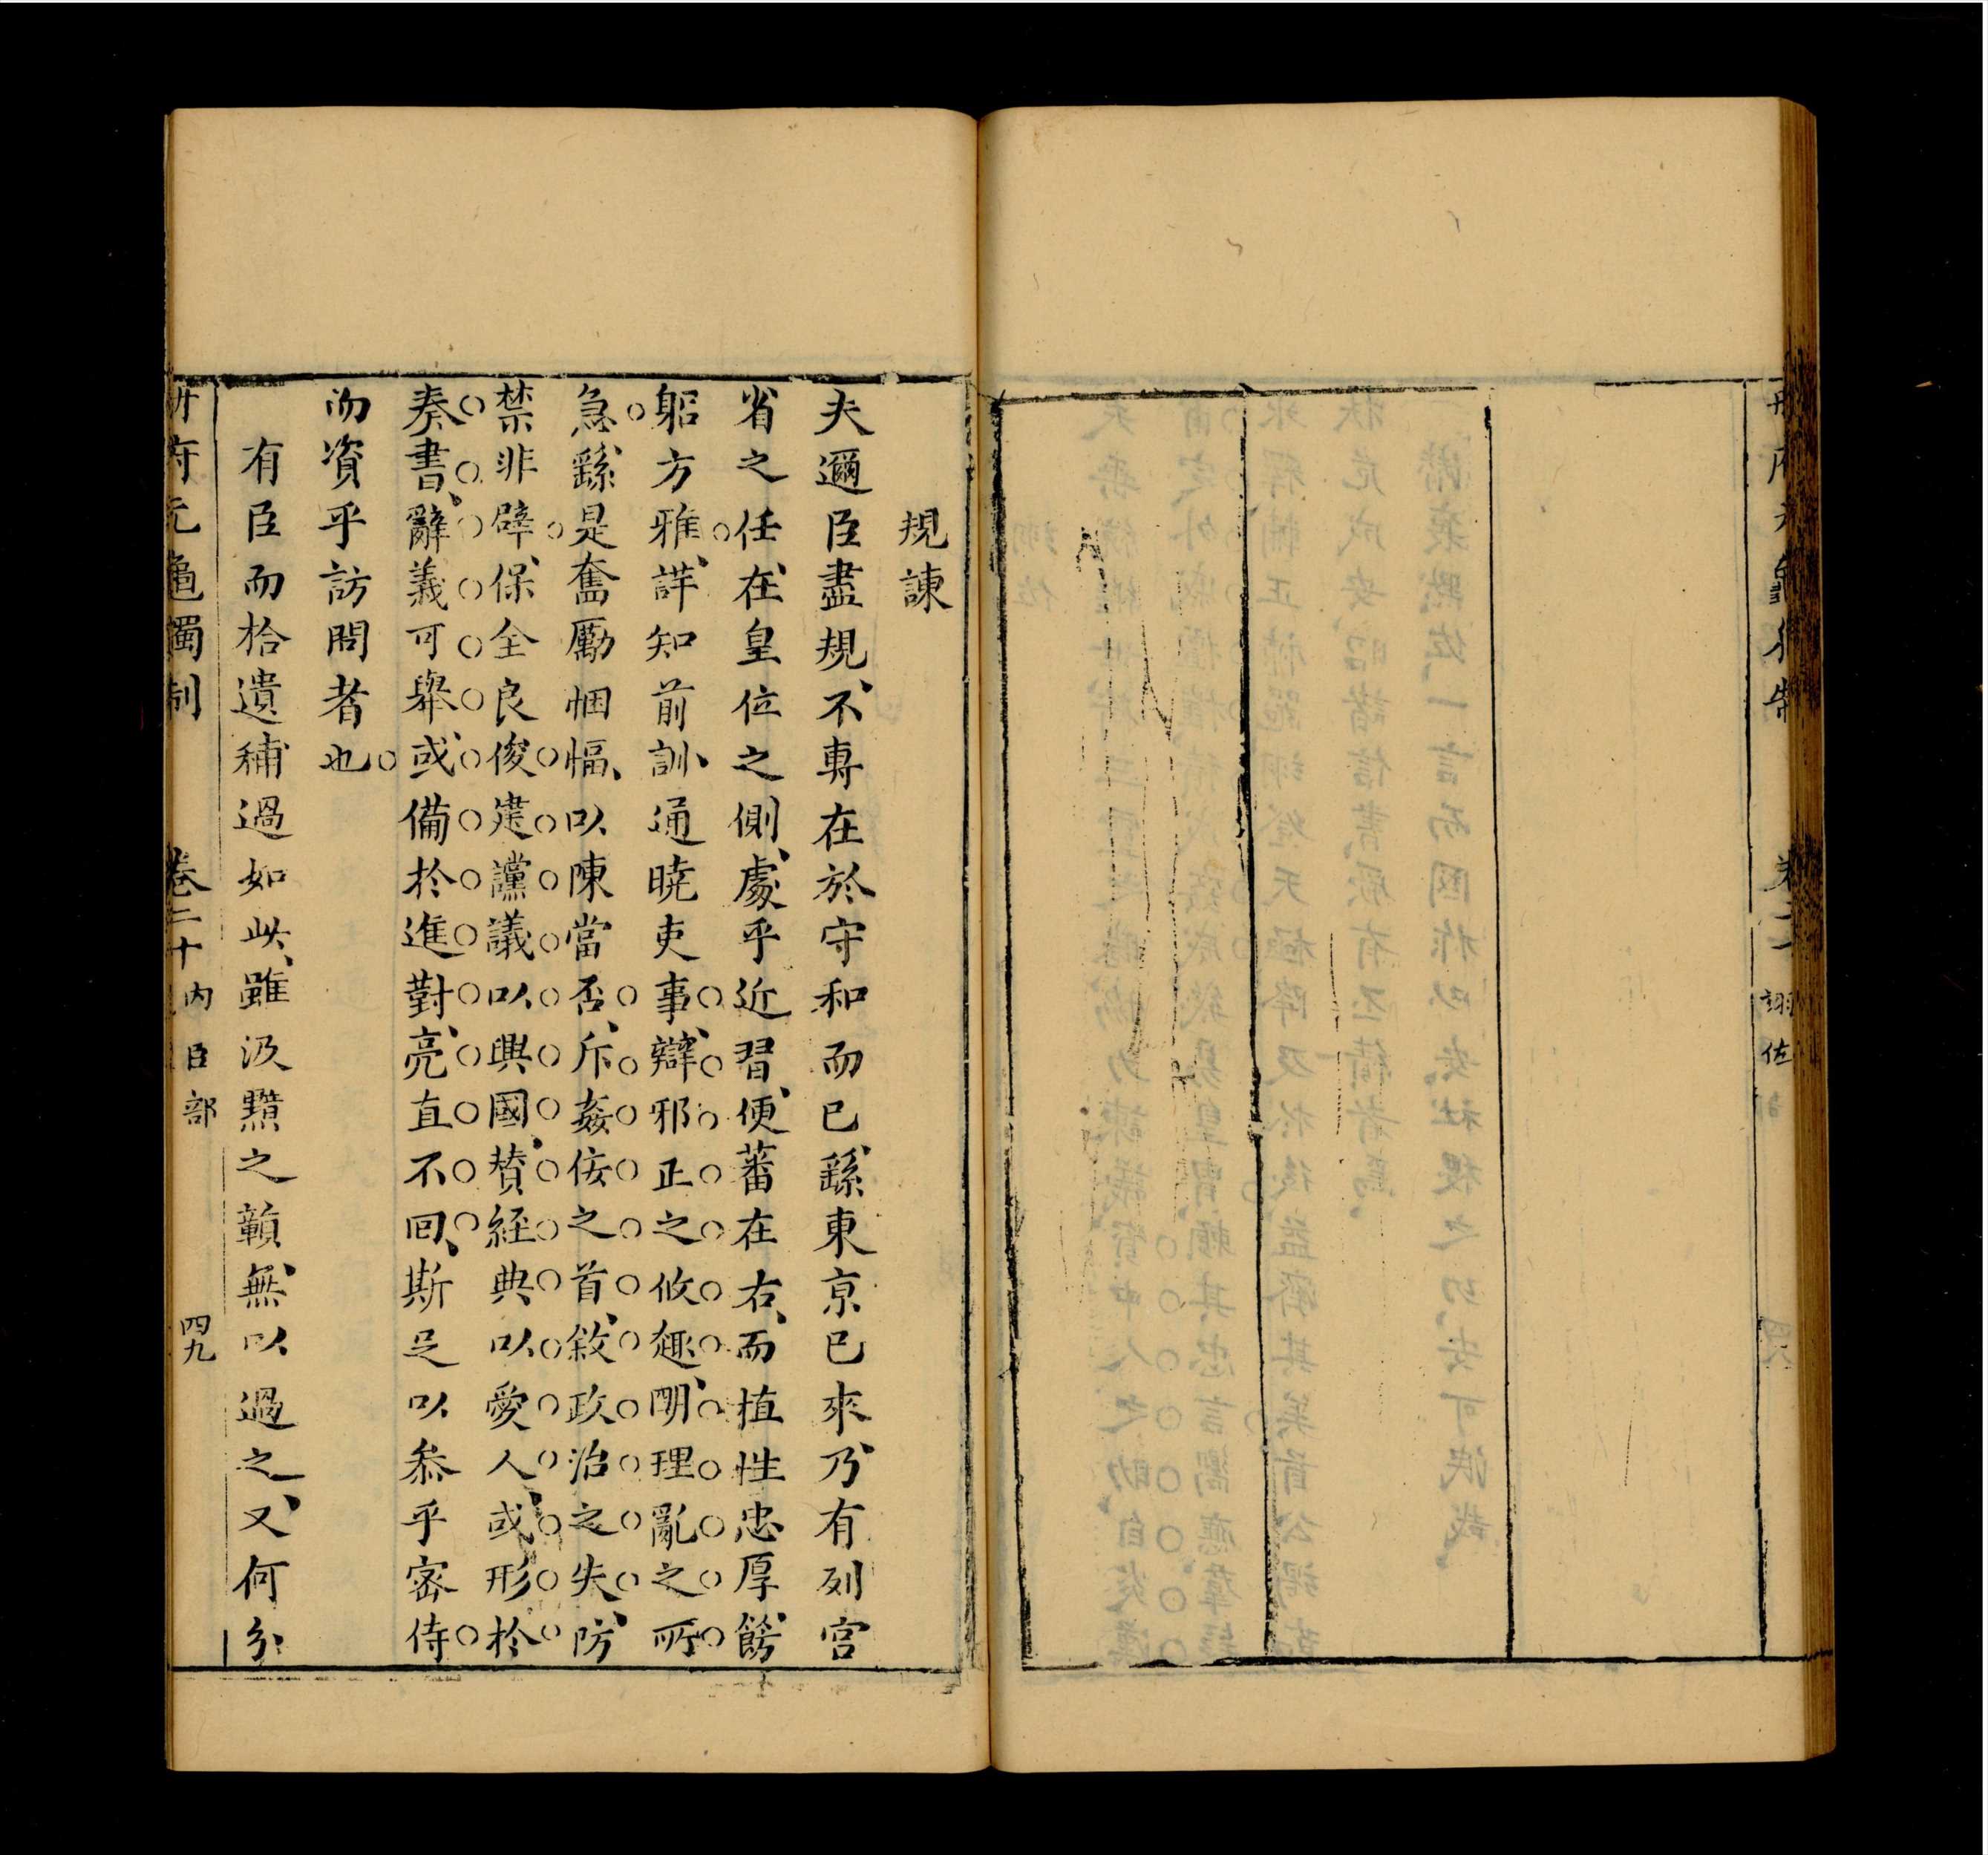 規諫
夫邇臣盡規不專在於守和而已繇東京已來乃有列宫
省之任在皇位之側處乎近習便蕃在右而植性忠厚餝
躬方雅詳知前訓通曉吏事辯邪正之攸趣明理亂之所
急繇是奮勵悃愊以陳當否斥姦佞之首敘政治之失防
禁非辟保全良俊建讜議以興國賛經典以愛人或形於
奏書辭義可舉或備於進對亮直不回斯足以叅乎宻侍
而資乎訪問者也
有臣而拾遺補過如此雖汲黯之顜無以過之又何分
府元龜獨制
卷二十
内臣部
四九
翊佐